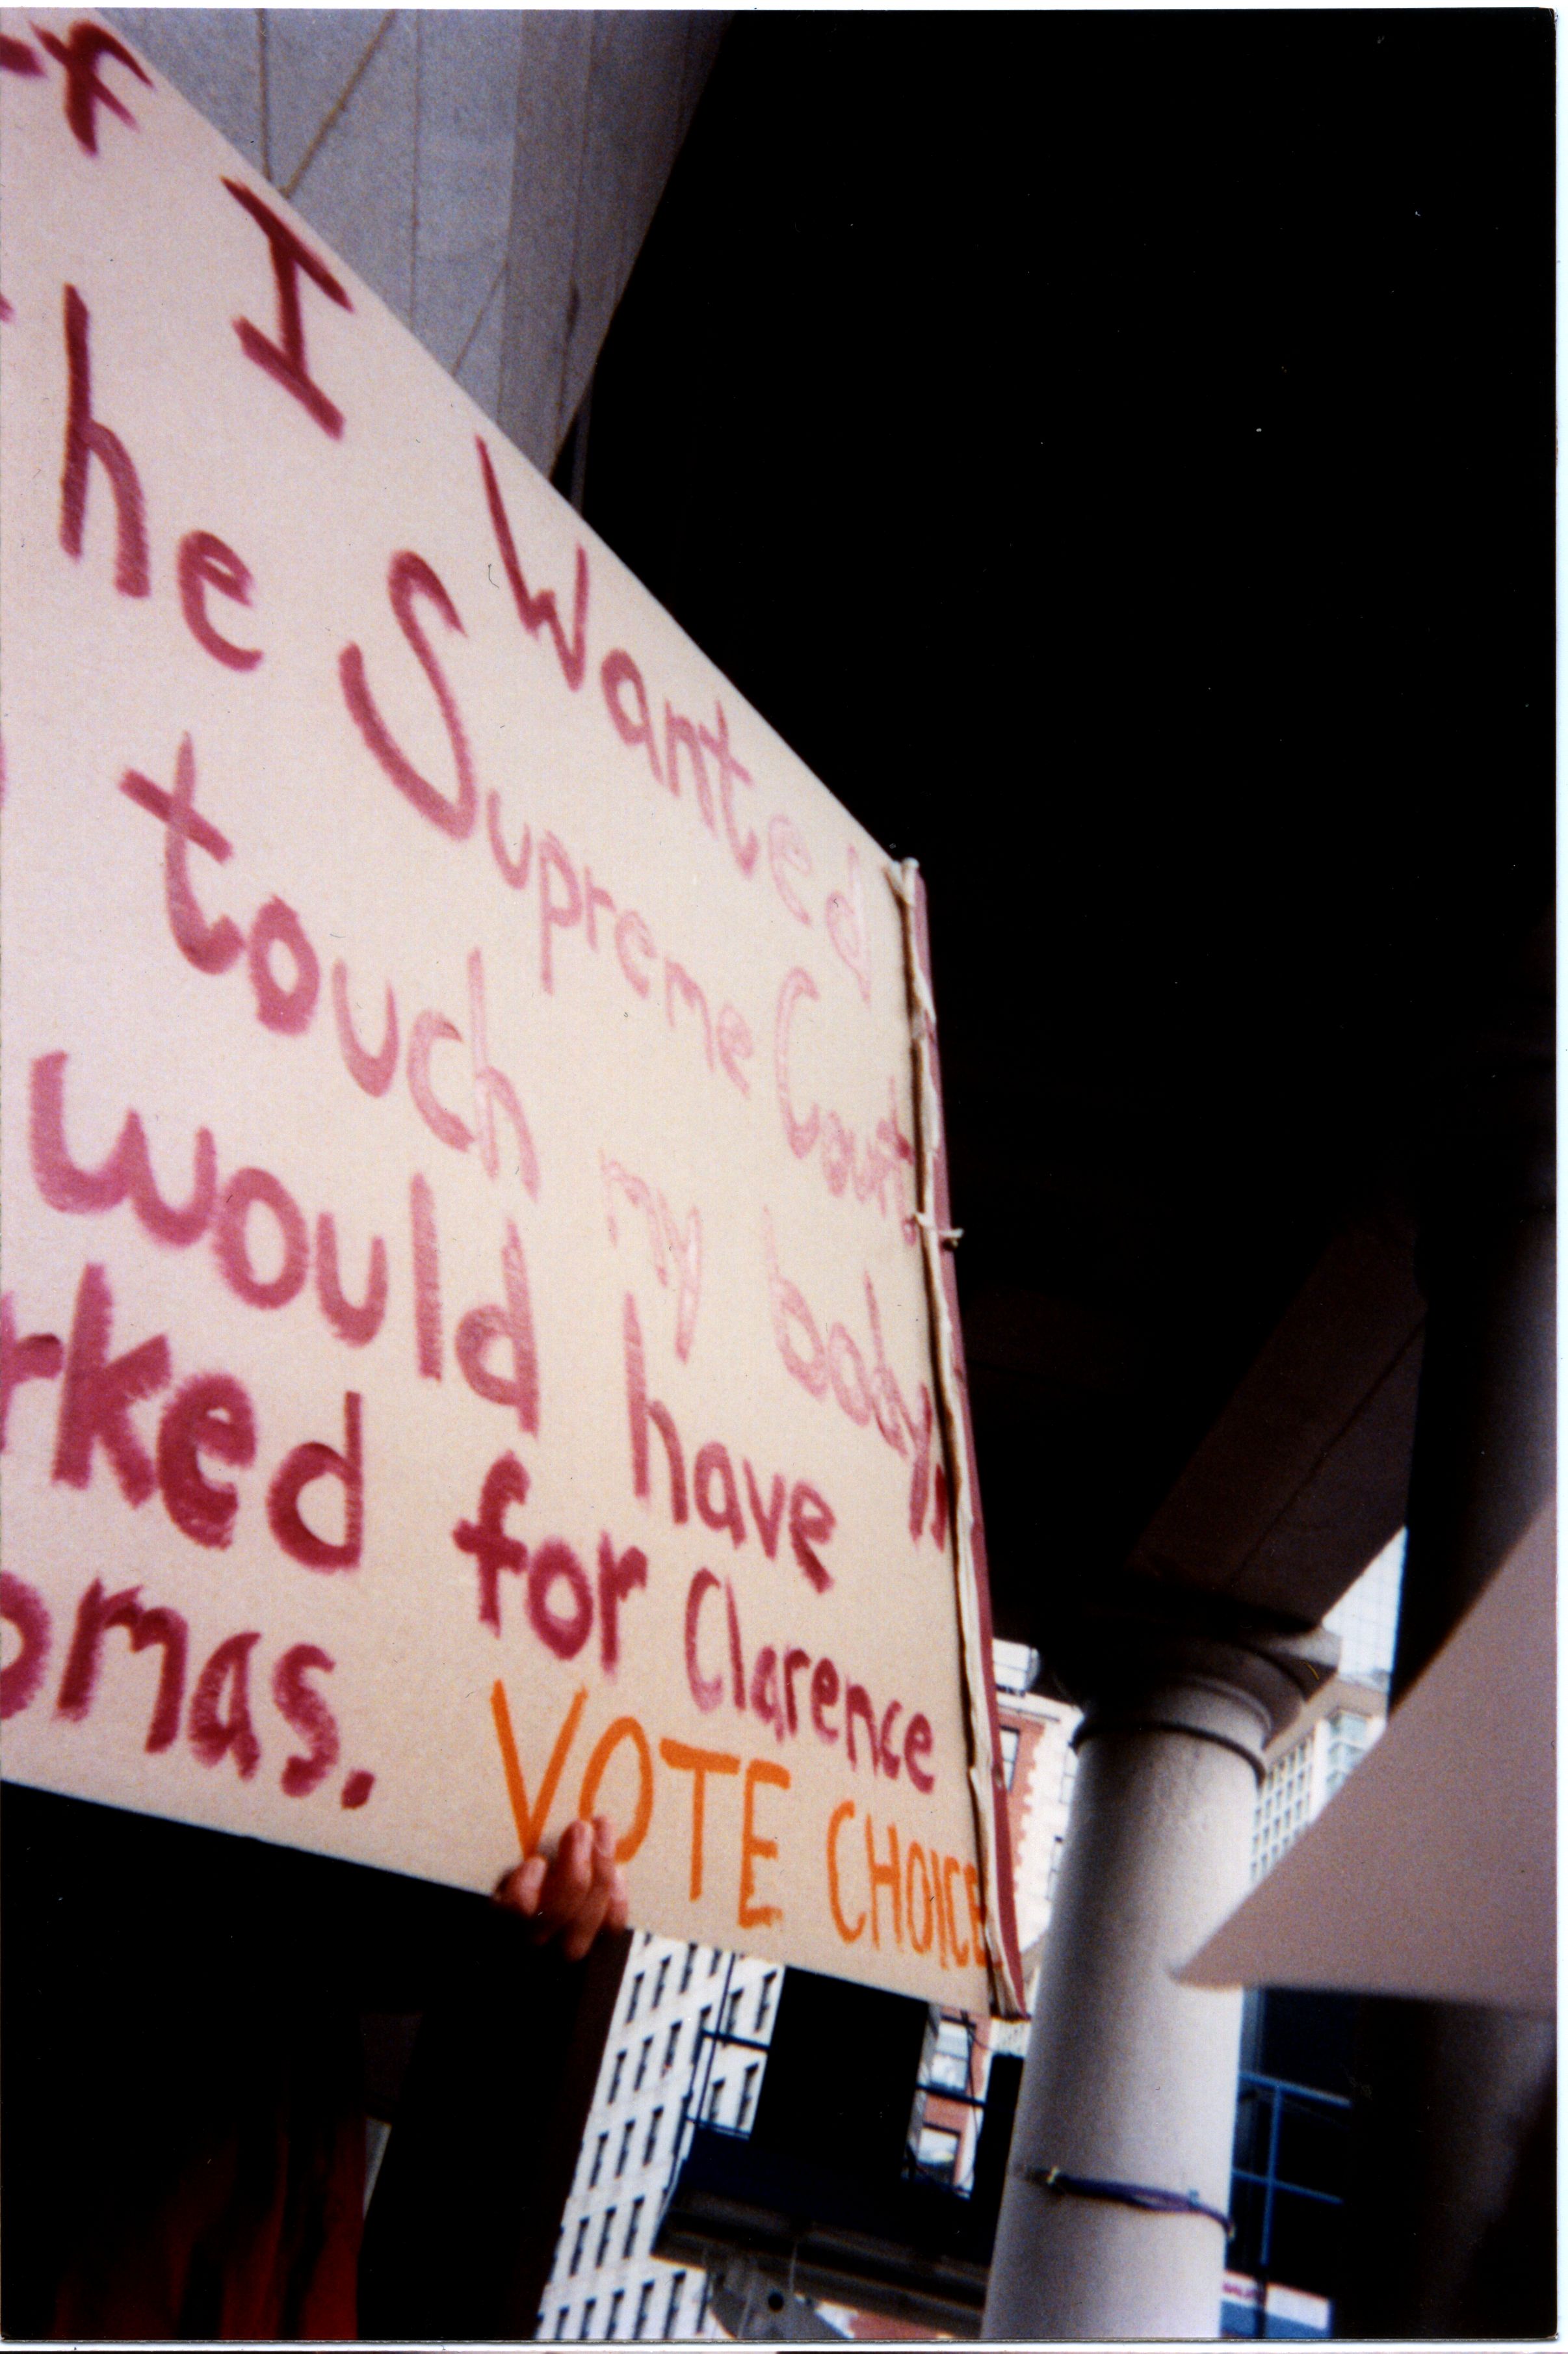 If I Wanted
the Supreme Court
to touch my body,
I would have
worked for Clarence
Thomas.
VOTE CHOICE